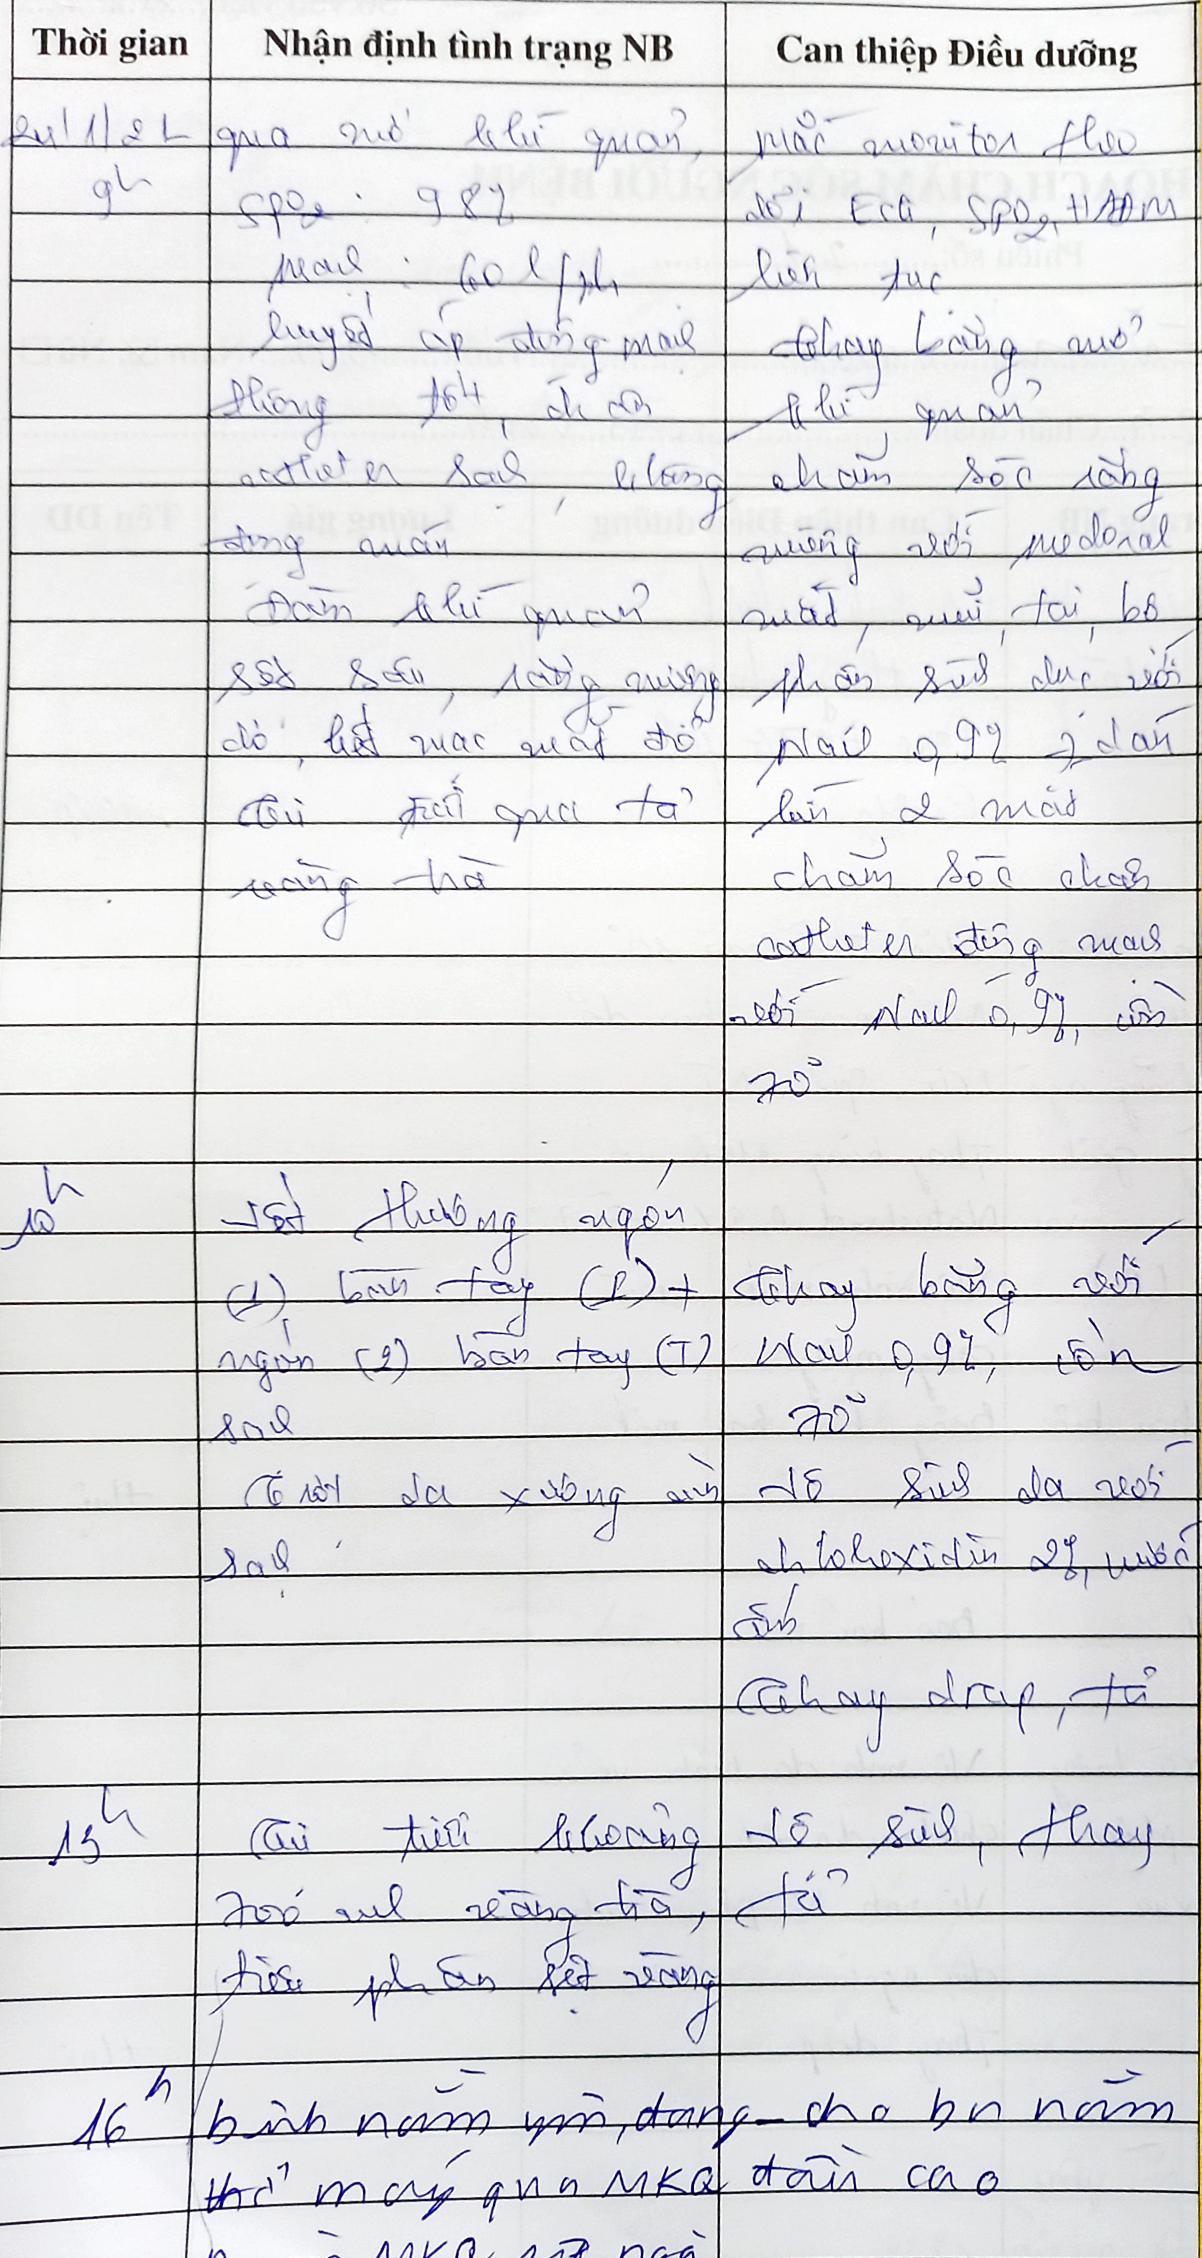 Thời gian
Nhận định tình trạng NB
Can thiệp Điều dưỡng
9h
qua mở khí quản,
SPO2 : 98%
mạch : 60 l/ph
huyết áp động mạch
thông tốt, chân
catheter sạch, không
Đàm khí quản
sét sấu, răng miệng
dơ, kết mạc mắt đỏ
tiểu qua tả
vàng trà
mắc monitor theo
dõi ECG, SPO2, HAĐM
liên tục
thay băng mở
khí quản
chăm sóc răng
miệng với medoral
mắt, mũi, tai, bộ
phận sinh dục với
Nacl 0,9%, dán
kín 2 mắt
chăm sóc chân
catheter động mạch
với Nacl 0,9%, cồn
70°
10h
Vết thương ngón
(1) bàn tay (P) +
ngón (2) bàn tay (T)
sạch
loét da xương cùn
sạch
thay băng với
Nacl 0,9%, cồn
70°
Vệ sinh da với
chlohexidin 2%, nước
ấm
Thay drap, tả
13h
tiểu khoảng
700 ml vàng trà,
tiêu phân sệt vàng
Vệ sinh, thay
tả
16h
bệnh nằm yên, đang
thở máy qua MKQ
cho bn nằm
đầu cao